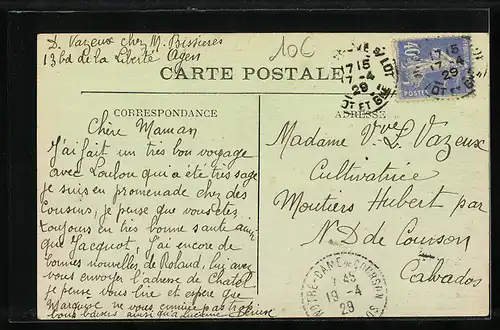 D. Vazeux chez M. Bissieres
13 bd de la Liberté Agen
10c
CARTE POSTALE
17 15
17-4
29
LOT ET GNE
40c
CORRESPONDANCE
ADRESSE
Chère Maman
J'ai fait un très bon voyage
avec Loulou qui a été très sage
je suis en promenade chez des
Cousins, je pense que vous êtes
toujours en très bonne santé ainsi
que Jacquot, j'ai encore de
bonnes nouvelles de Roland, lui avez
vous envoyer l'adresse de Chatel
je pense vous lire et espère que
ne vous ennuie pas trop
bons baisers ainsi qu'à Lucienne Denise
Madame Vve L. Vazeux
Cultivatrice
Moutiers Hubert par
N D de Courson
Calvados
NOTRE-DAME DE COURSON
7 45
19-4
29